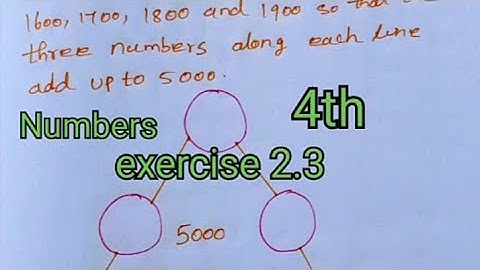 1600, 1700, 1800 and 1900 so that
three numbers along each line
add up to 5000.
4th
Numbers
exercise 2.3
5000